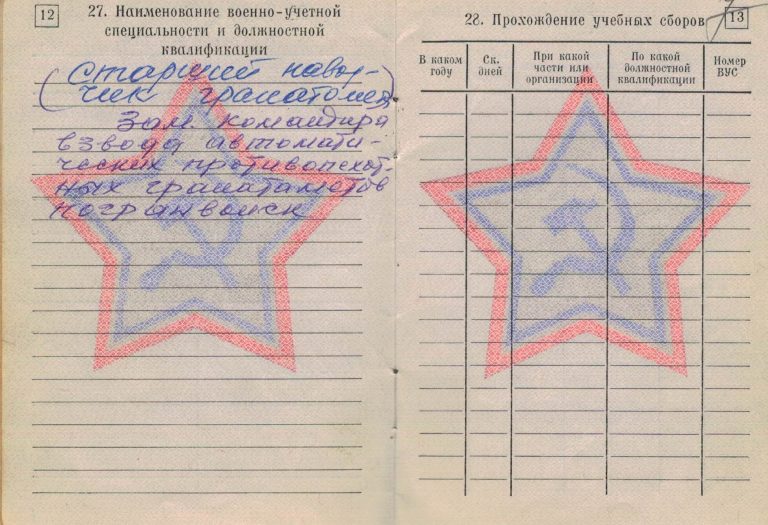 12
27. Наименование военно-учетной
специальности и должностной
квалификации
(Старший навод-
чик гранатомета)
Зам. командира
взвода автомати-
ческих противопехот-
ных гранатаметов
погранвойск
28. Прохождение учебных сборов
13
В каком году
Ск. дней
При какой части или организации
По какой должностной квалификации
Номер ВУС